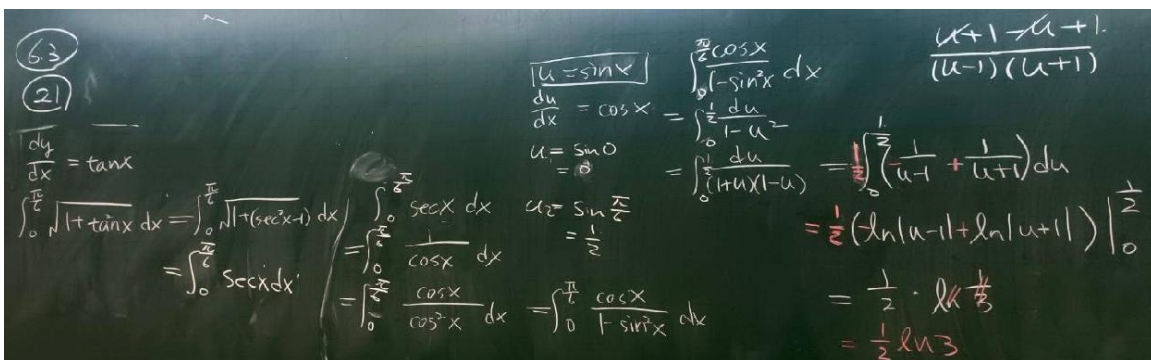 6.3
21
dy/dx = tanx
∫₀^{π/6} √(1+tan²x) dx = ∫₀^{π/6} √(1+(sec²x-1)) dx
= ∫₀^{π/6} secx dx
∫₀^{π/6} secx dx
= ∫₀^{π/6} 1/cosx dx
= ∫₀^{π/6} cosx/cos²x dx = ∫₀^{π/6} cosx/(1-sin²x) dx
u = sinx
du/dx = cosx
u₁ = sin0
= 0
u₂ = sin π/6
= 1/2
∫₀^{π/6} cosx/(1-sin²x) dx
= ∫₀^{1/2} du/(1-u²)
= ∫₀^{1/2} du/((1+u)(1-u))
(u+1-u+1)/((u-1)(u+1))
= 1/2 ∫₀^{1/2} (-1/(u-1) + 1/(u+1)) du
= 1/2 (-ln|u-1| + ln|u+1|) |₀^{1/2}
= 1/2 · ln
= 1/2 ln3